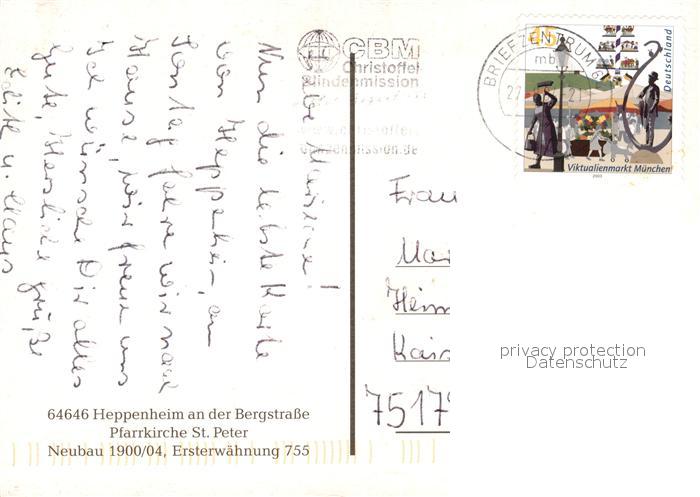 Liebe Marianne!
Nun die letzte Karte
von Heppenheim, am
Sontag fahren wir nach
Hause, wir freuen uns
Ich wünsche Dir alles
Gute, Herzliche Grüße
Edith u. Klaus
CBM
Christoffel
Blindenmission
www.christoffel-
blindenmission.de
BRIEFZENTRUM 6
mb
45
Deutschland
Viktualienmarkt München
2003
Frau
Mar
Heim
Kais
7517
privacy protection
Datenschutz
64646 Heppenheim an der Bergstraße
Pfarrkirche St. Peter
Neubau 1900/04, Ersterwähnung 755